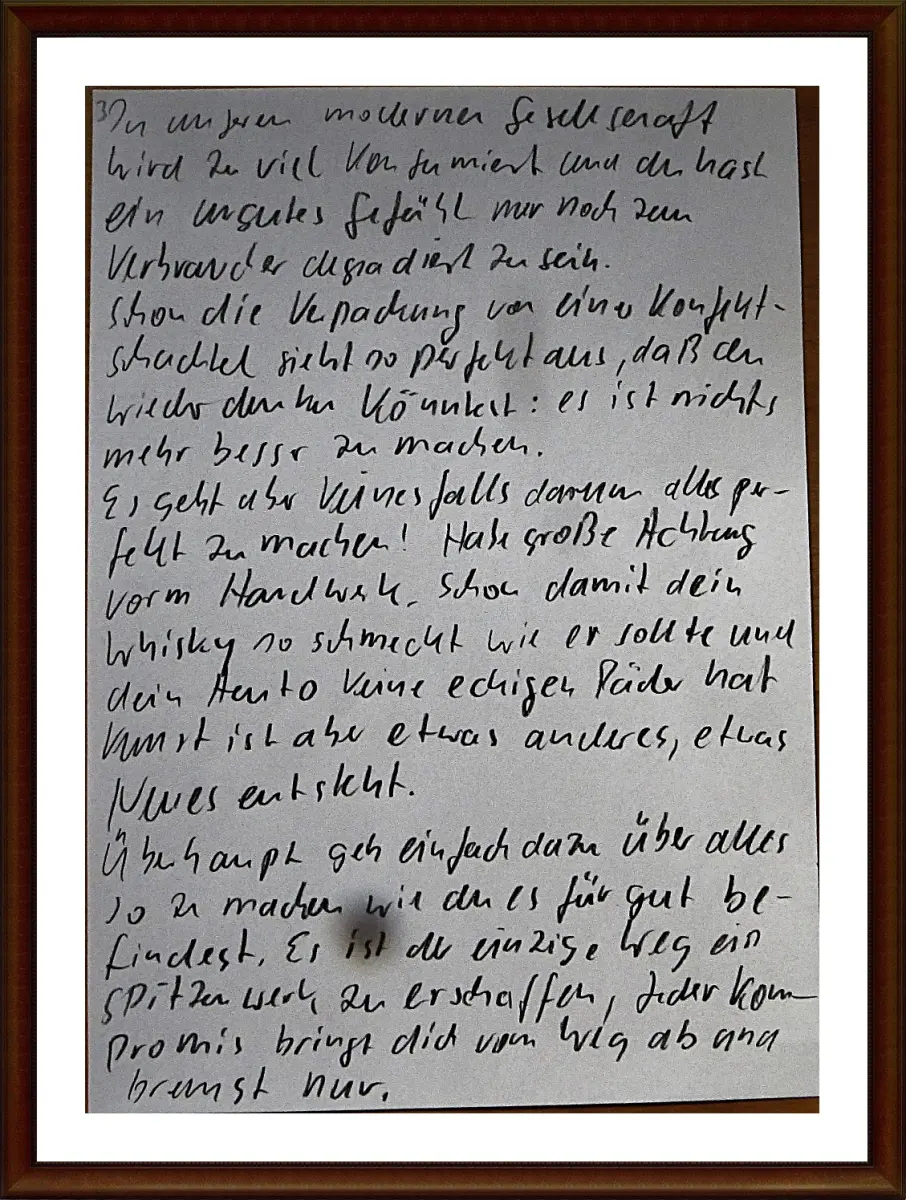 3) In unseren moderner Gesellschaft
wird zu viel konsumiert und du hast
ein ungutes Gefühl nur noch zum
Verbraucher degradiert zu sein.
Schon die Verpackung von einer Konfekt-
schachtel sieht so perfekt aus, daß du
wieder denken könntest: es ist nichts
mehr besser zu machen.
Es geht aber keinesfalls darum alles per-
fekt zu machen! Habe große Achtung
vorm Handwerk. Schon damit dein
Whisky so schmeckt wie er sollte und
dein Auto keine eckigen Räder hat
Kunst ist aber etwas anderes, etwas
Neues entsteht.
Überhaupt geh einfach dazu über alles
so zu machen wie du es für gut be-
findest. Es ist der einzige Weg ein
Spitzenwerk zu erschaffen, Jeder Kom-
promis bringt dich vom Weg ab und
bremst nur.